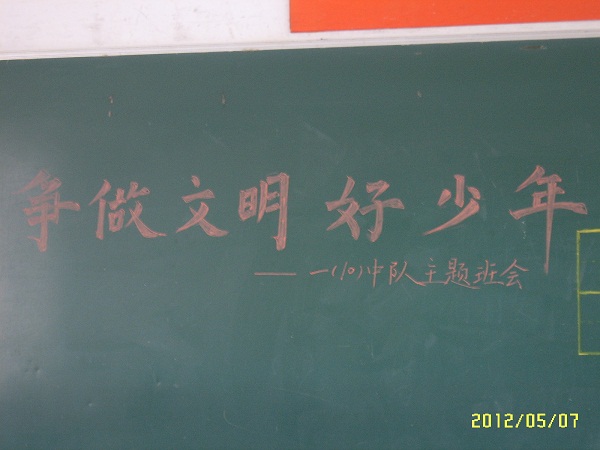 争做文明好少年
——一(10)中队主题班会
2012/05/07